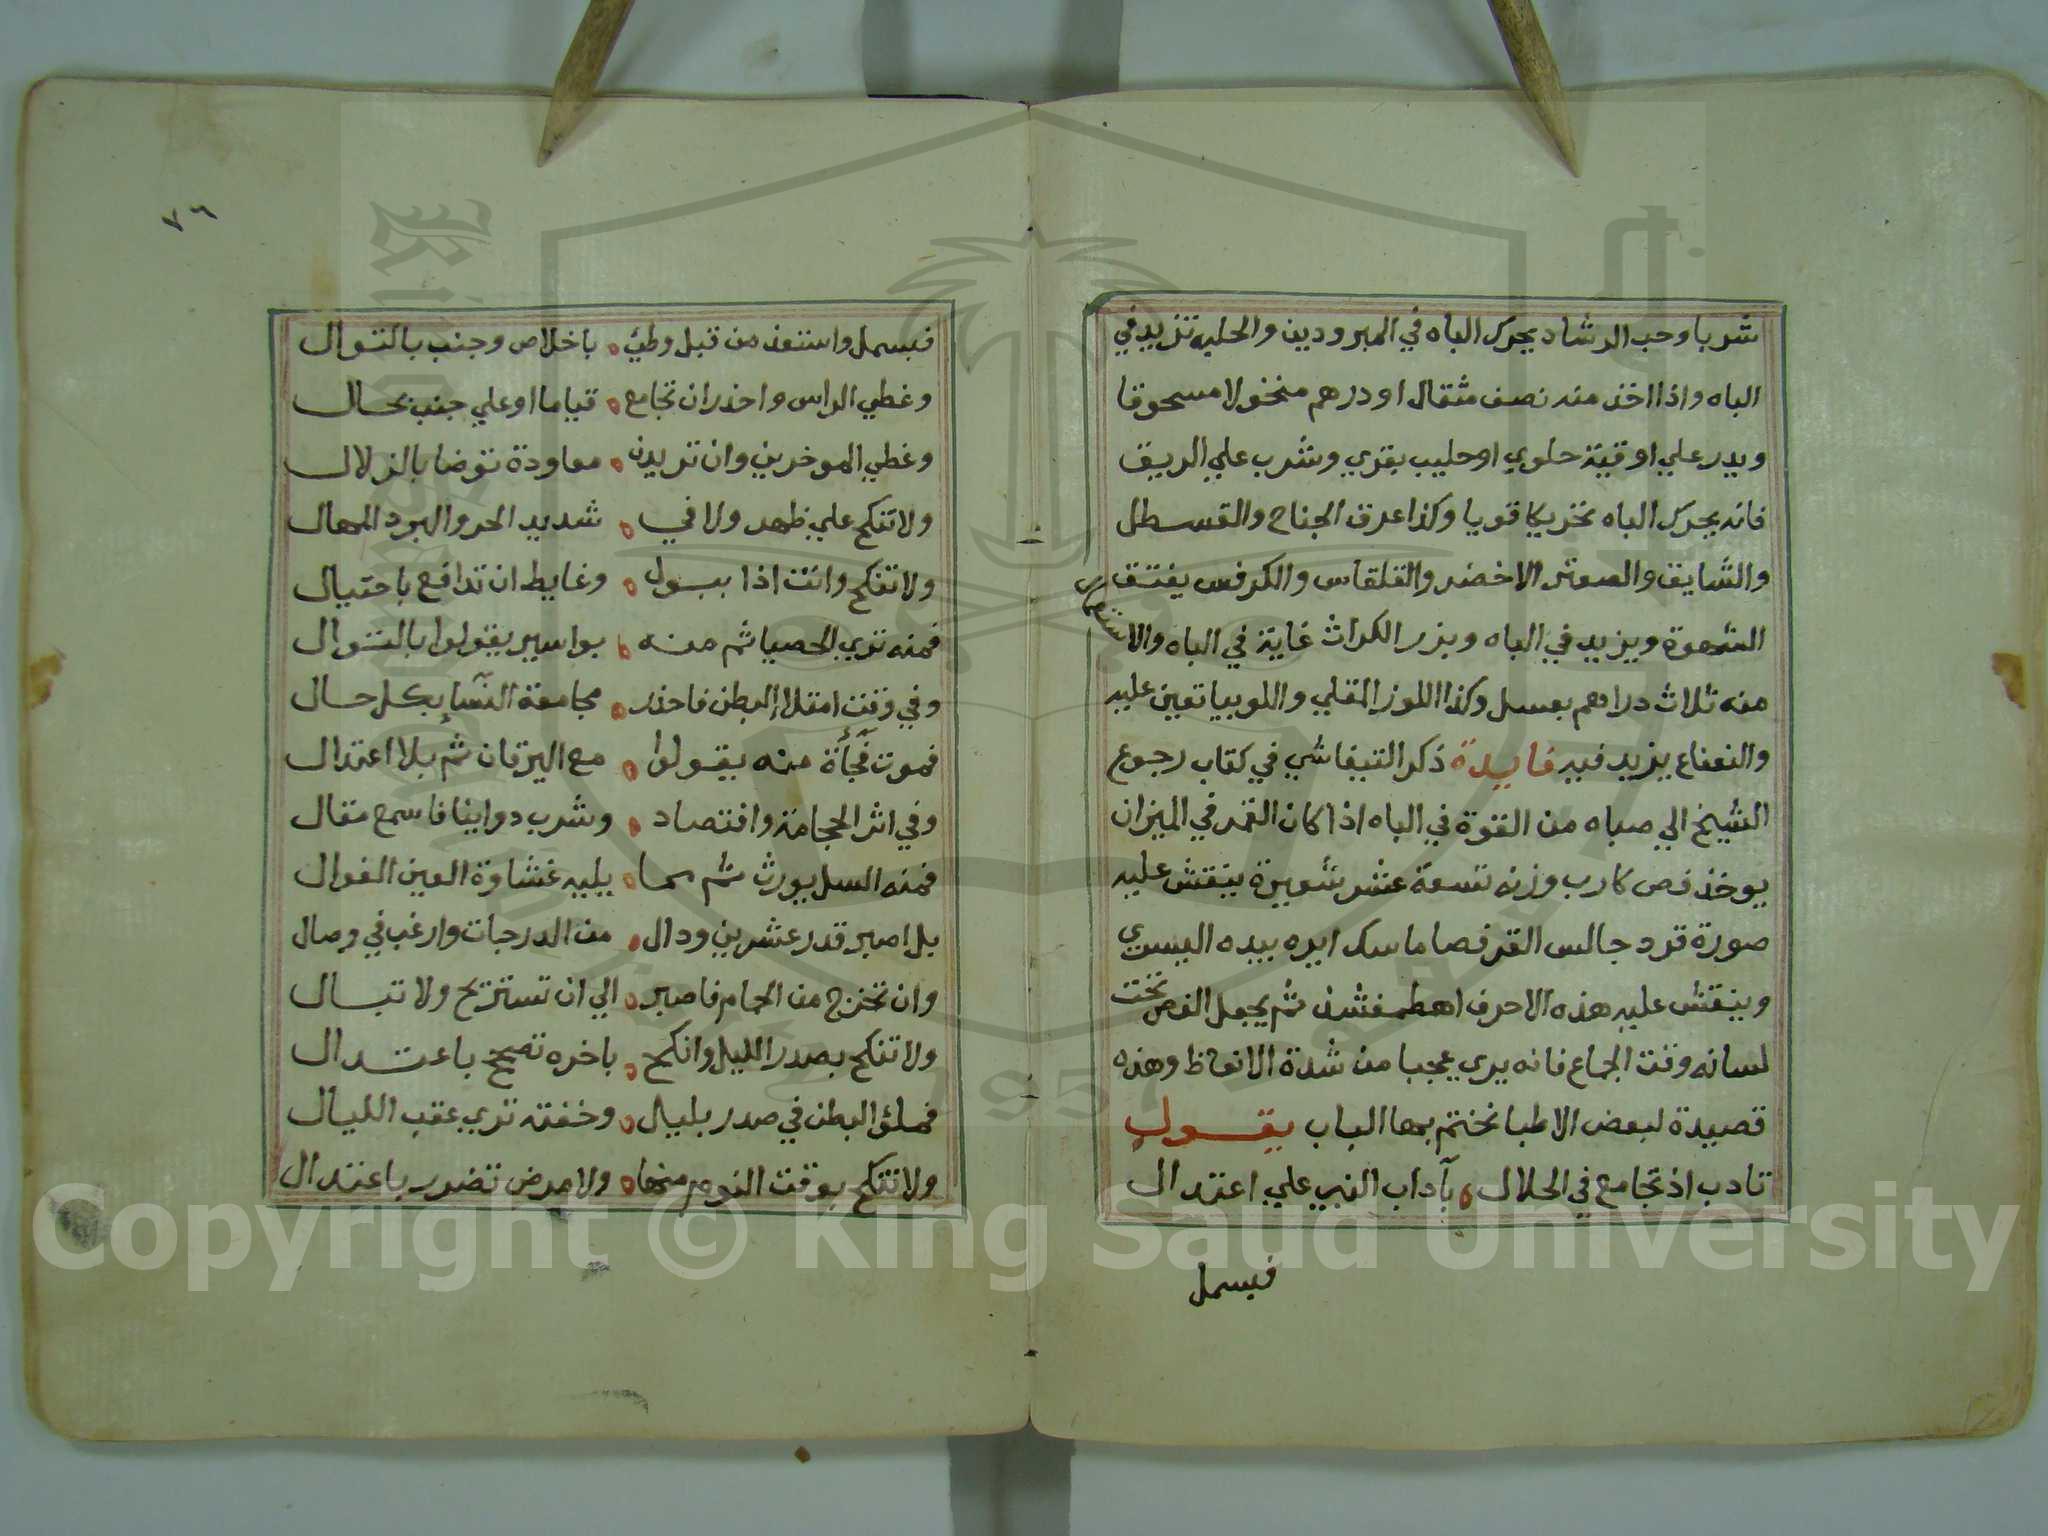 شربا وحب الرشاد يحرك الباه في المبرودين والحلبه تزيد في
الباه واذا اخذ منه نصف مثقال او درهم منخولا مسحوقا
ويدر علي اوقية حلوي او حليب بقري وشرب علي الريق
فانه يحرك الباه تحريكا قويا وكذا عرق الجناح والقسطل
والشايق والصوتر الاخضر والقلقاس والكرفس يفتق
الشهوة ويزيد في الباه وبزر الكراث غاية في الباه والاستعمال
منه ثلاث دراهم بعسل وكذا اللوز المقلي واللوبيا تعين عليه
والنعناع يزيد فيه فايدة ذكر التيفاشي في كتاب رجوع
الشيخ الي صباه من القوة في الباه اذا كان القمر في الميزان
يوخذ فص كارب وزنه تسعة عشر شعيرة ينقش عليه
صورة قرد جالس القرفصا ماسك ايره بيده اليسري
وينقش عليه هذه الاحرف اهطمفشذ ثم يجعل الفص تحت
لسانه وقت الجماع فانه يري عجبا من شدة الانعاظ وهذه
قصيدة لبعض الاطبا نختم بها الباب يقول
تادب اذ تجامع في الحلال ه بآداب النبي علي اعتدال
فبسمل
٧٦
فبسمل واستعذ من قبل وطئ ه باخلاص وجنب بالتوال
وغطي الراس واحذر ان تجامع ه قياما او علي جنب بحال
وغطي الموخرين وان تريدن ه معاودة توضا بالزلال
ولا تنكح علي ظهر ولا في ه شديد الحر والبرد المهال
ولا تنكح وانت اذا ببول ه وغايط ان تدافع باحتيال
فمنه تري الحصيا ثم منه ه بواسير يقولوا بالتوال
وفي وقت امتلا إلبطن فاحذر ه مجامعة النسآ بكل حال
فموت فجأة منه يقولوا ه مع اليرقان ثم بلا اعتدال
وفي اثر الحجامة وافتصاد ه وشرب دوا ايضا فاسمع مقال
فمنه السل يورث ثم حما ه يليه غشاوة العين الغوال
بل اصبر قدر عشرين ودال ه من الدرجات وارغب في وصال
وان تخرج من الحمام فاصبر ه الي ان تستريح ولا تبال
ولا تنكح بصدر الليل وانكح ه باخره تصبح باعتدال
فملؤ البطن في صدر بليال ه وخفته تري عقب الليال
ولا تنكح بوقت النوم منها ه ولا مرض تضرر باعتدال
Copyright © King Saud University
1957